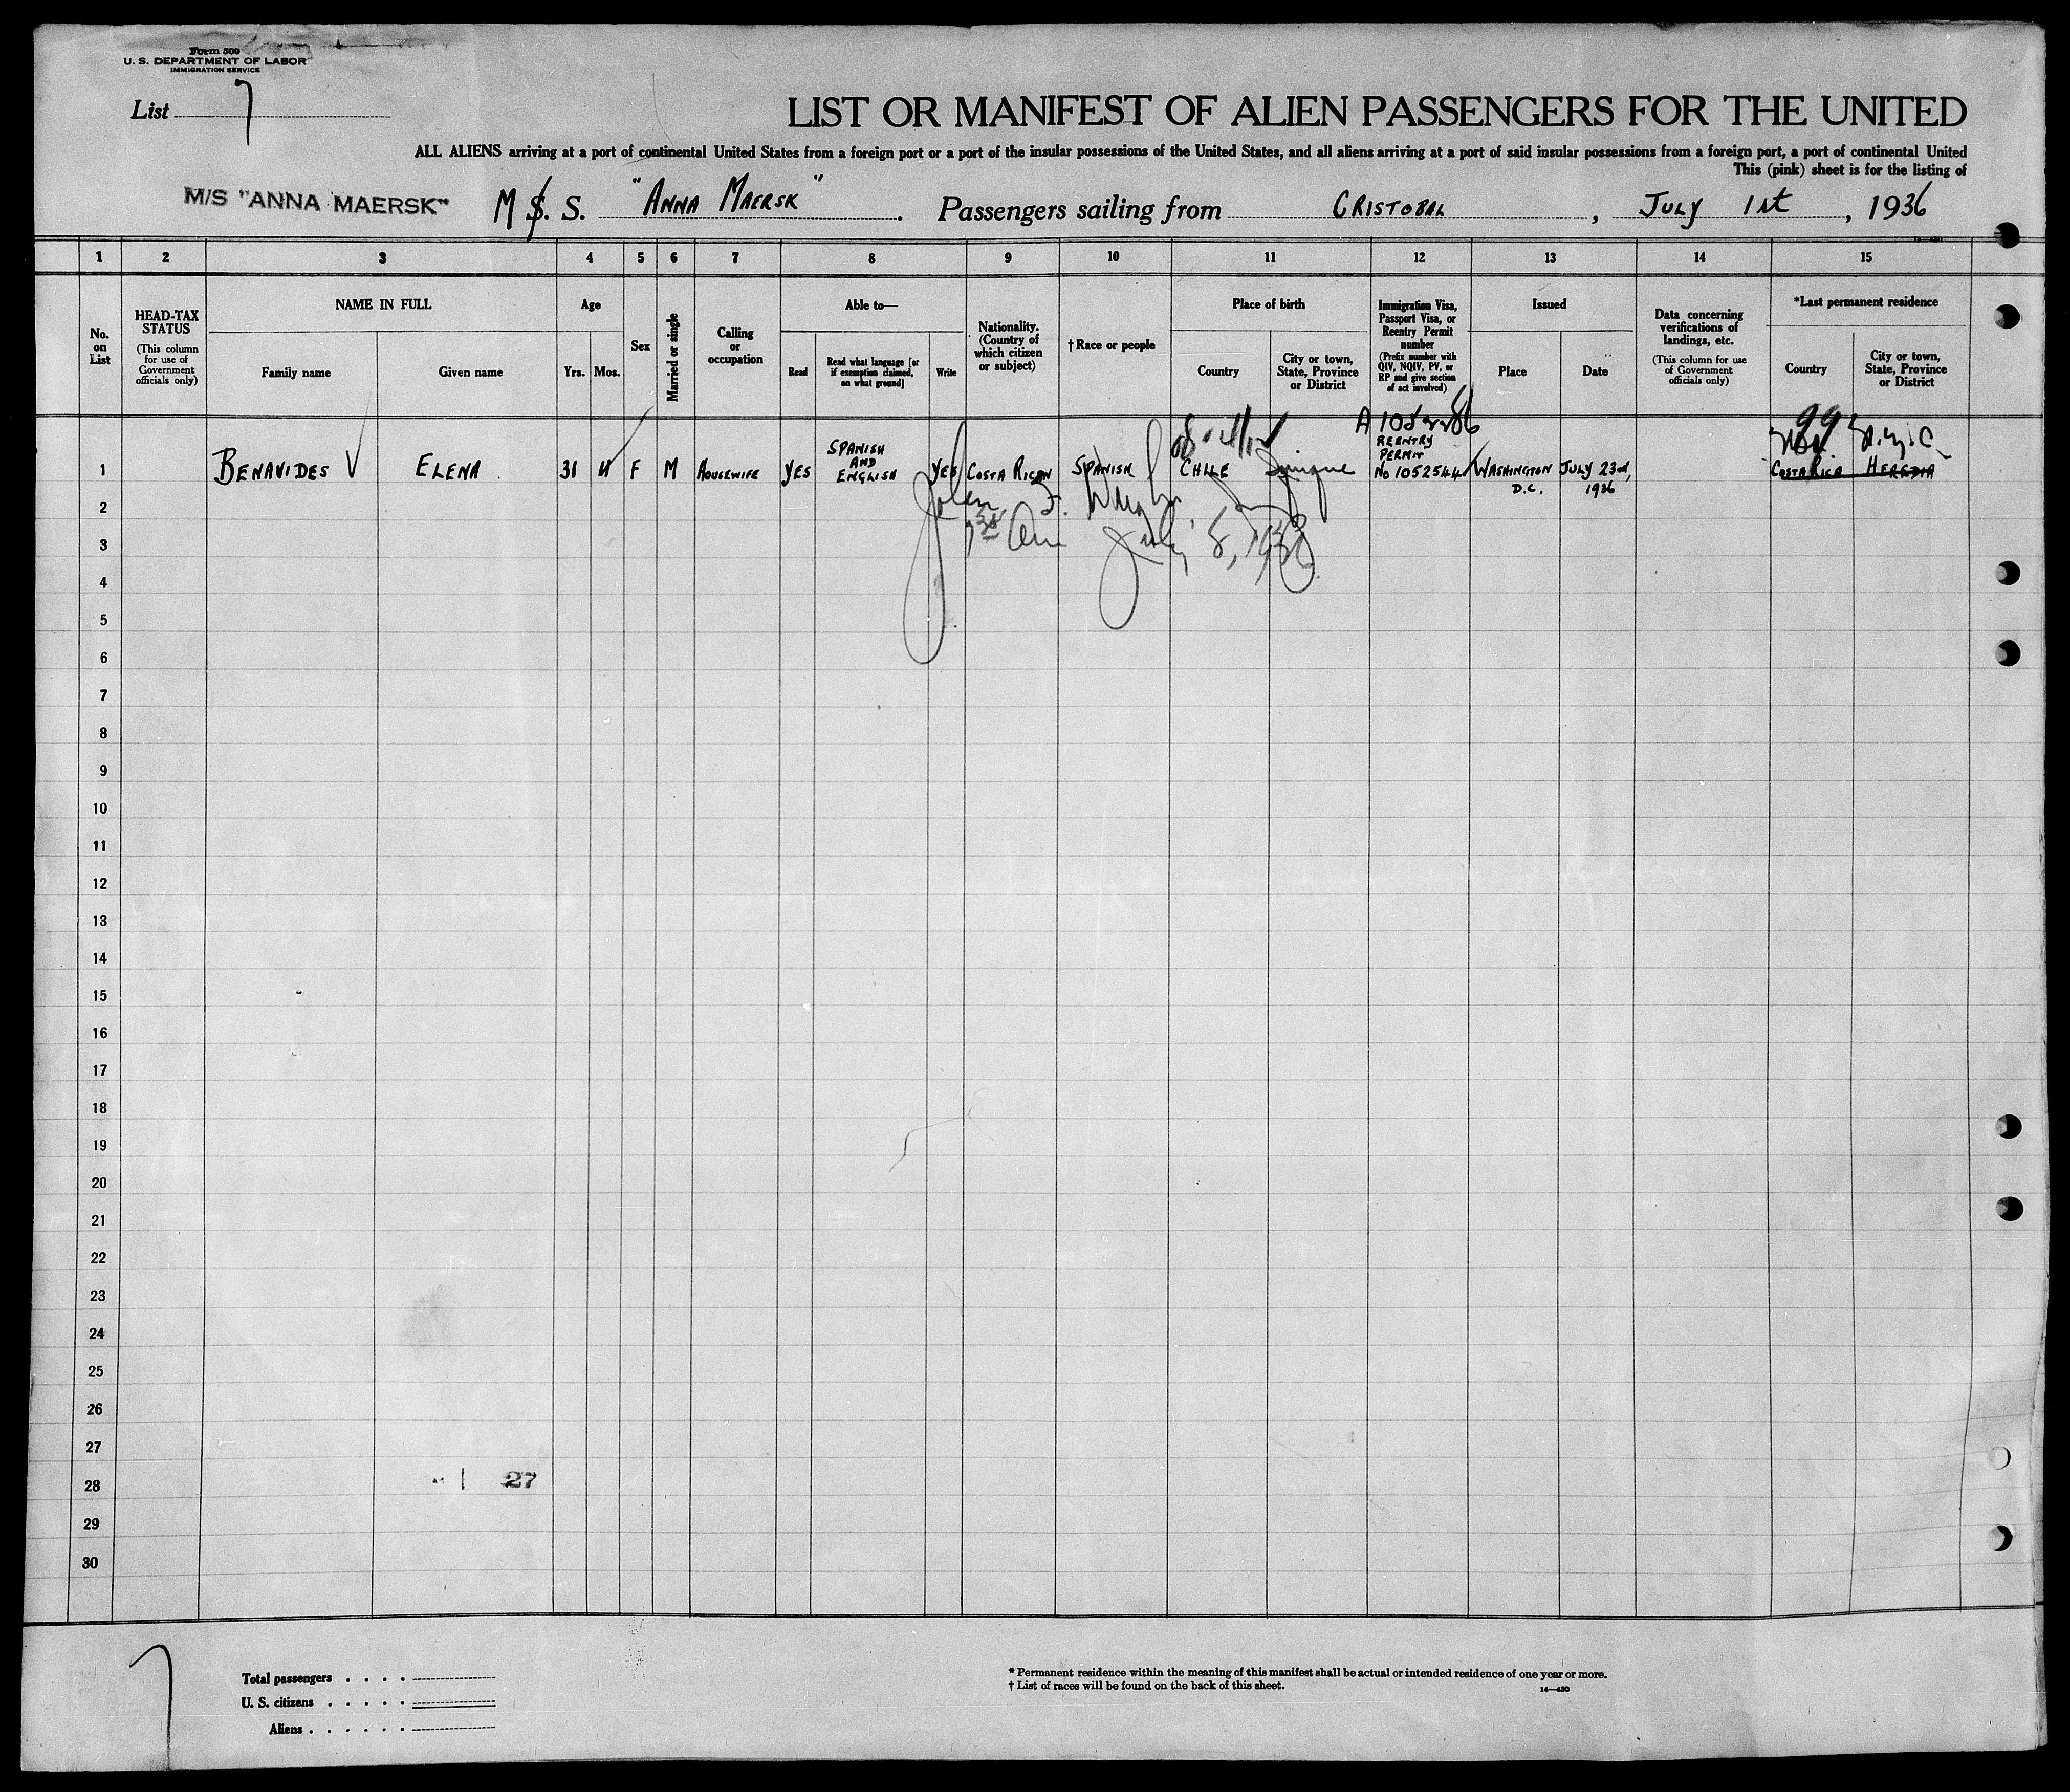 Form 500
U. S. DEPARTMENT OF LABOR
IMMIGRATION SERVICE
List 7
LIST OR MANIFEST OF ALIEN PASSENGERS FOR THE UNITED
ALL ALIENS arriving at a port of continental United States from a foreign port or a port of the insular possessions of the United States, and all aliens arriving at a port of said insular possessions from a foreign port, a port of continental United
This (pink) sheet is for the listing of
M/S "ANNA MAERSK" M S. S. "ANNA MAERSK". Passengers sailing from CRISTOBAL, JULY 1st, 1936
1 2 3 4 5 6 7 8 9 10 11 12 13 14 15
No. on List
HEAD-TAX STATUS
(This column for use of Government officials only)
NAME IN FULL
Family name Given name
Age
Yrs. Mos.
Sex
Married or single
Calling or occupation
Able to—
Read
Read what language [or if exemption claimed, on what ground]
Write
Nationality. (Country of which citizen or subject)
†Race or people
Place of birth
Country
City or town, State, Province or District
Immigration Visa, Passport Visa, or Reentry Permit number
(Prefix number with QIV, NQIV, PV, or RP and give section of act involved)
Issued
Place Date
Data concerning verifications of landings, etc.
(This column for use of Government officials only)
*Last permanent residence
Country
City or town, State, Province or District
99
1 BENAVIDES ELENA 31 4 F M HOUSEWIFE YES SPANISH AND ENGLISH YES COSTA RICAN SPANISH CHILE Iquique REENTRY PERMIT No 1052544 WASHINGTON D.C. JULY 23rd, 1936 COSTA RICA HEREDIA
John F.
July 8, 1936
2
3
4
5
6
7
8
9
10
11
12
13
14
15
16
17
18
19
20
21
22
23
24
25
26
27
28
27
29
30
7
Total passengers
U. S. citizens
Aliens
* Permanent residence within the meaning of this manifest shall be actual or intended residence of one year or more.
† List of races will be found on the back of this sheet.
14—430